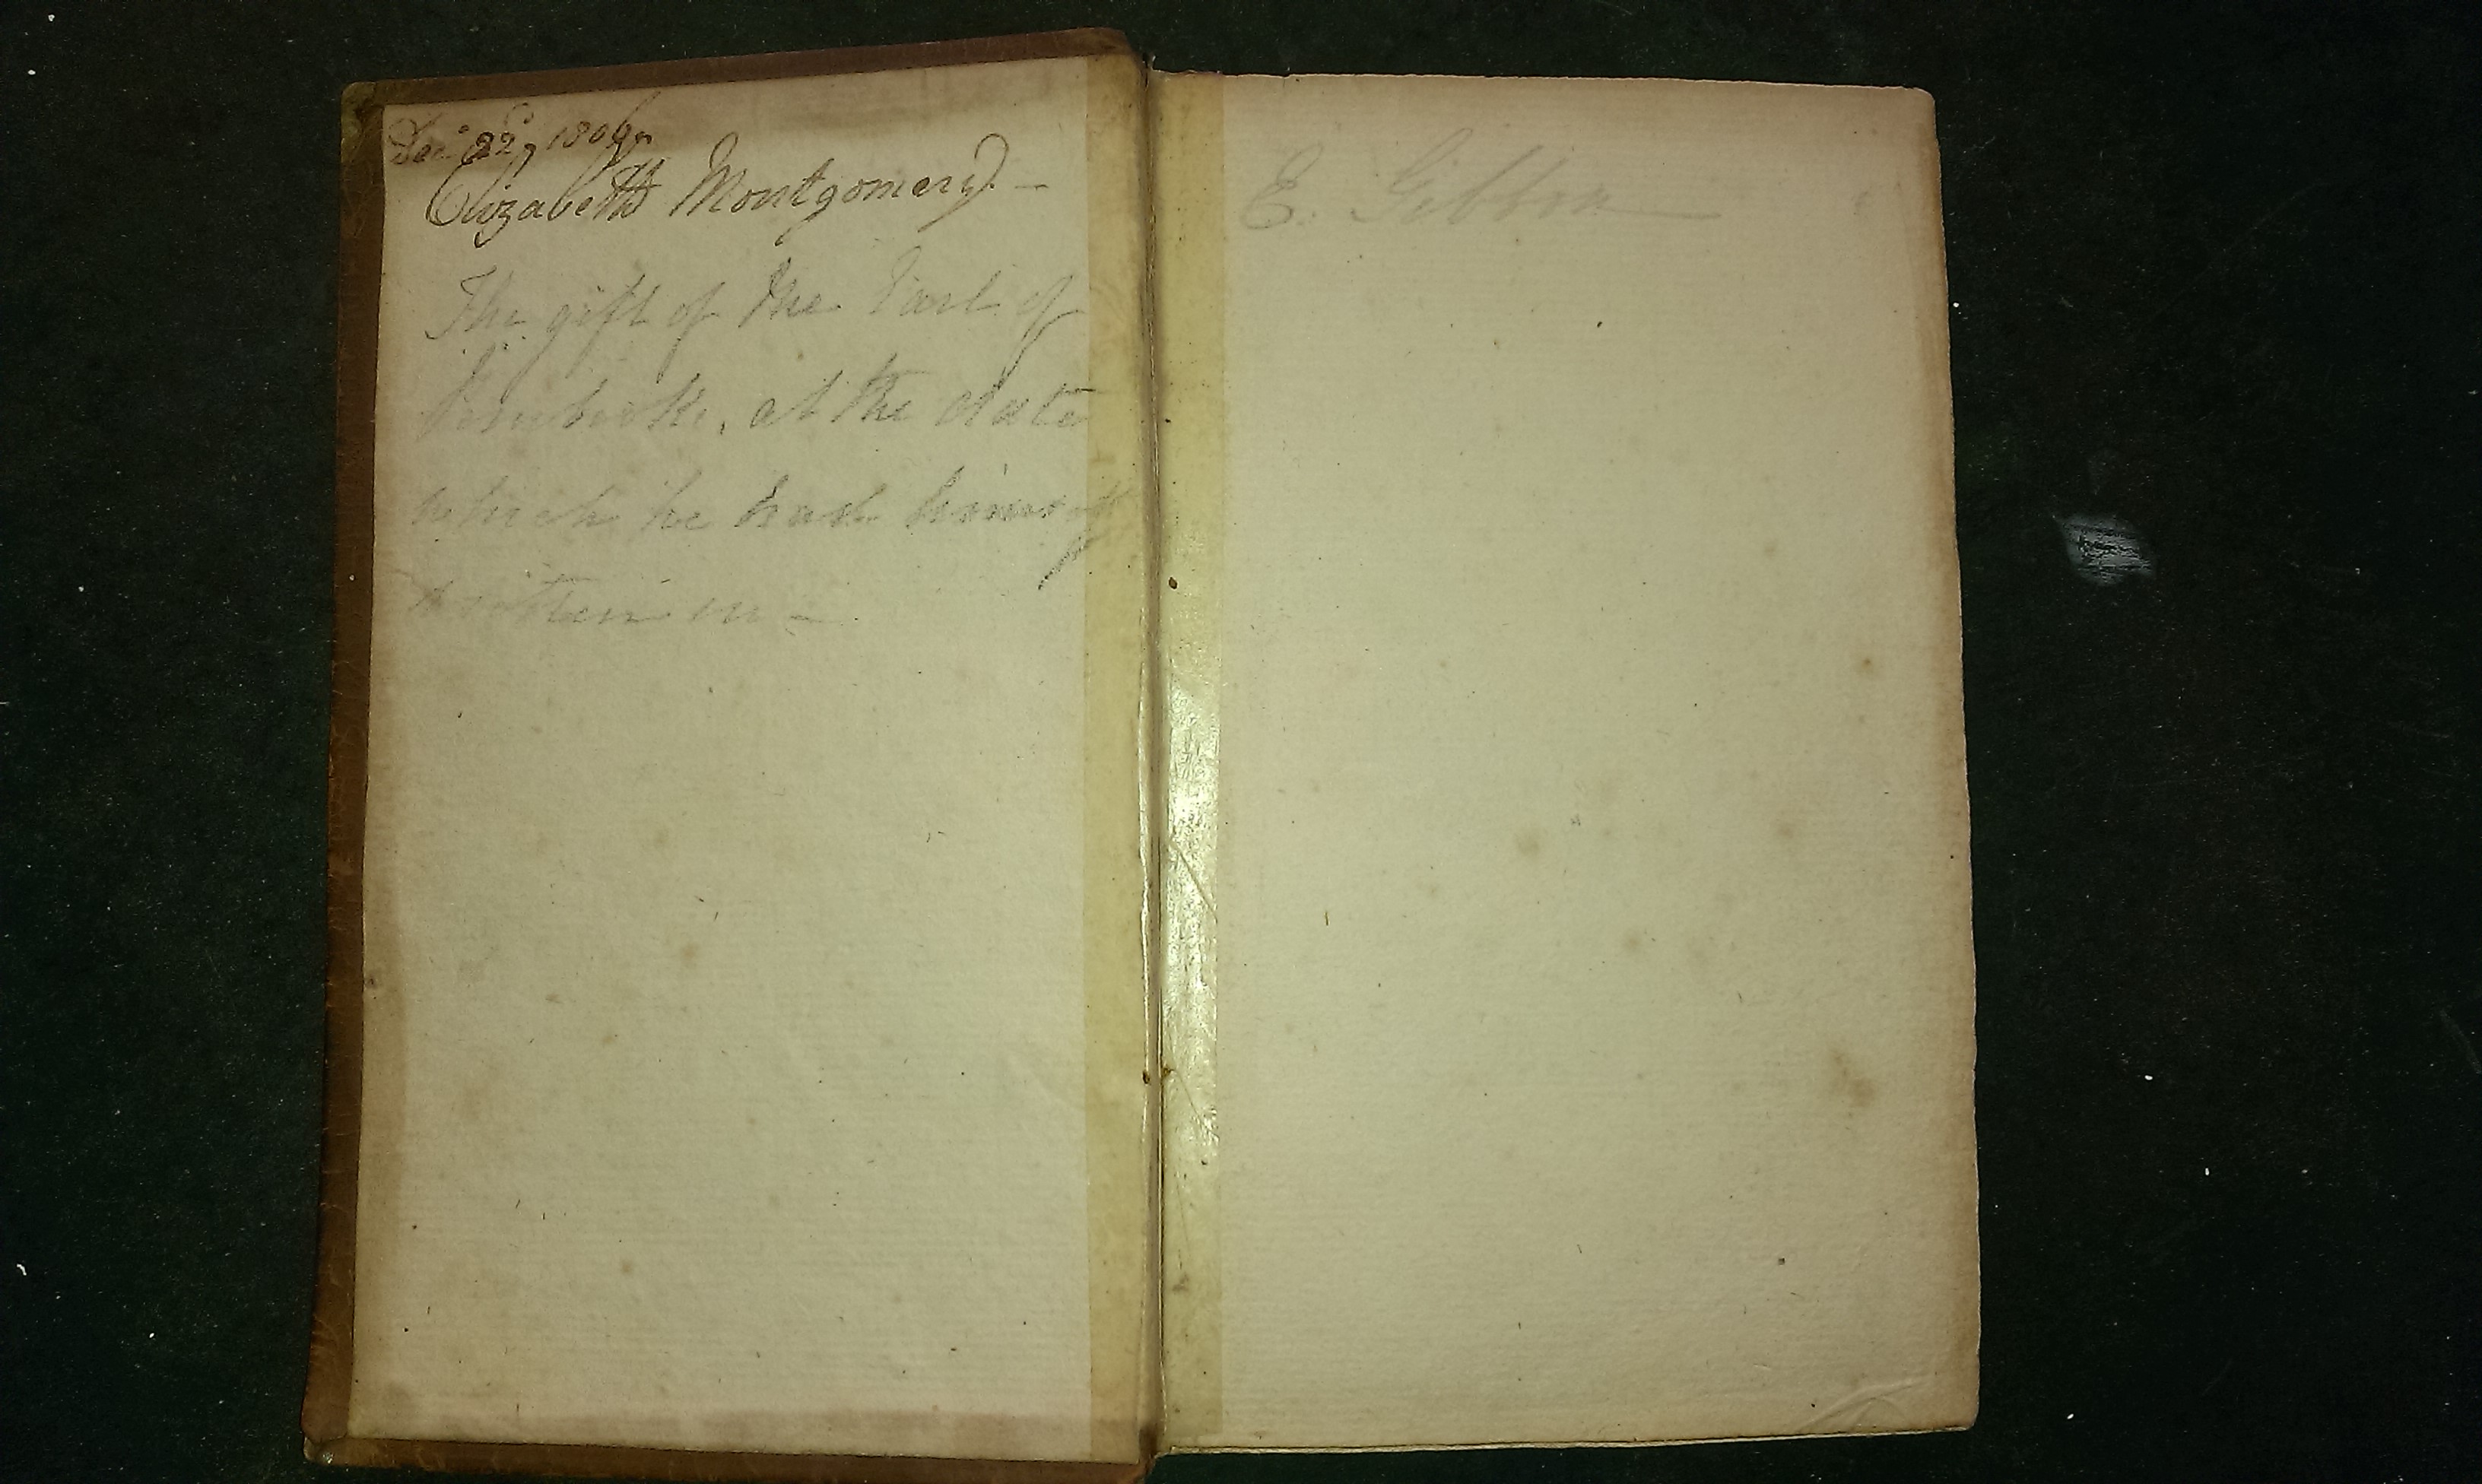 Dec 22d, 1806
Elizabeth Montgomery –
The gift of the Earl of
Pembroke, at the date
which he has himself
written in –
E. Gibbon